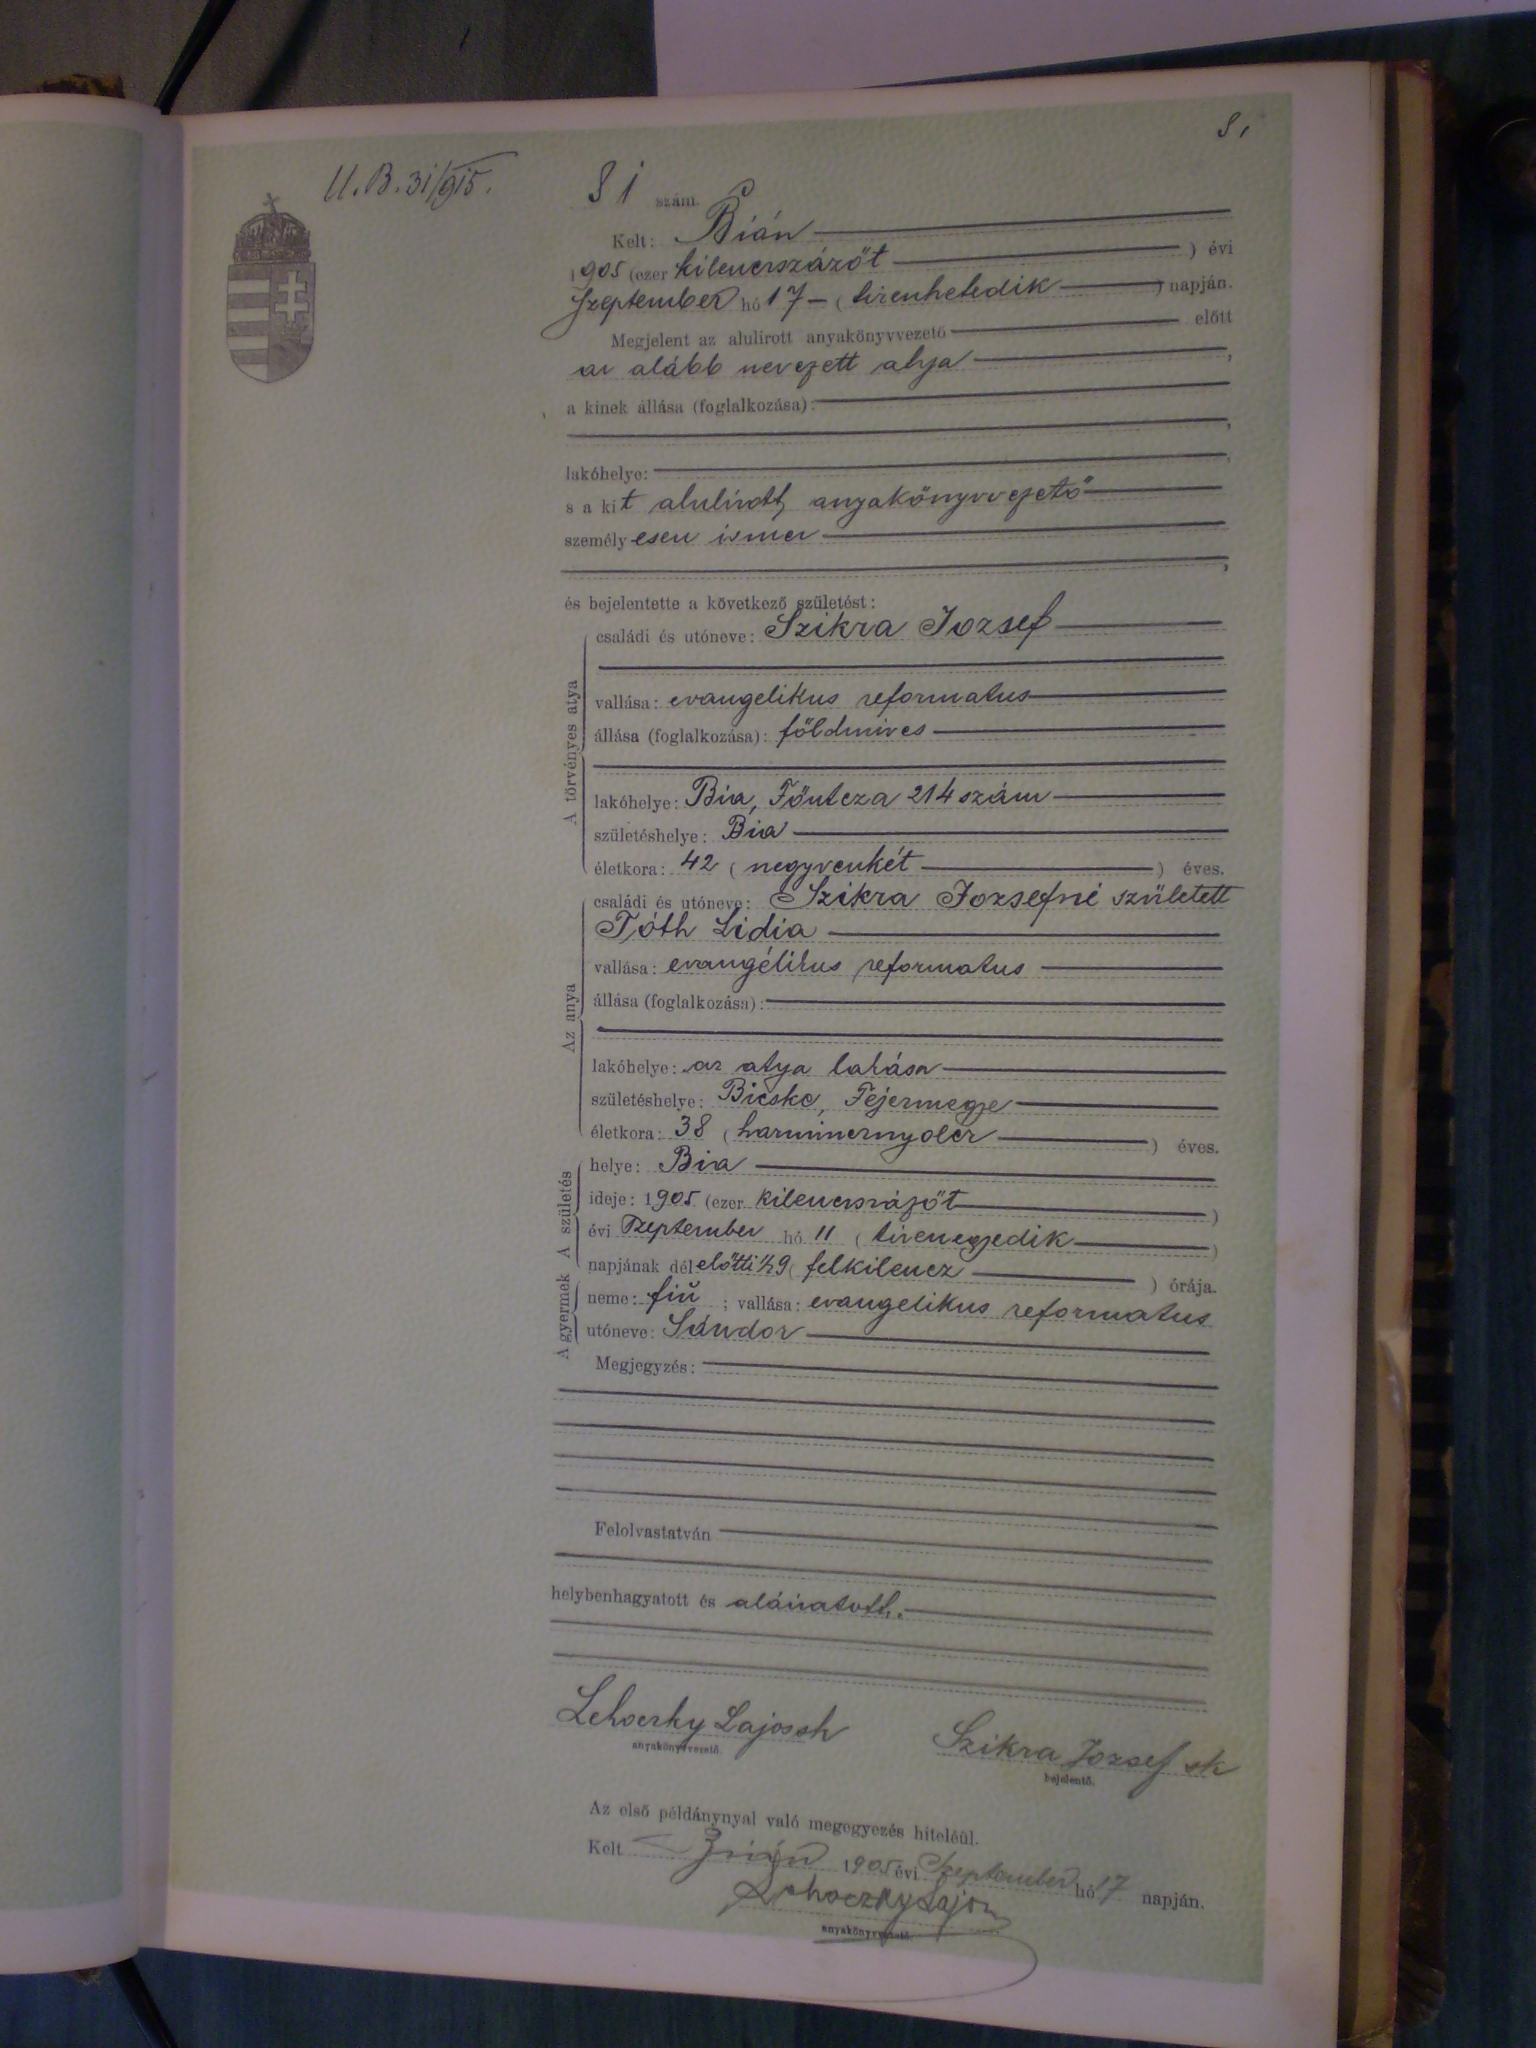 81
U. B. 31/915.
81 szám.
Kelt: Bián
1905 (ezer kilencszázöt ) évi
Szeptember hó 17 - ( tizenhetedik ) napján.
Megjelent az alulirott anyakönyvvezető előtt
az alább nevezett atya ,
a kinek állása (foglalkozása):
,
lakóhelye: ,
s a kit alulírott anyakönyvvezető
személyesen ismer
,
és bejelentette a következő születést:
A törvényes atya
családi és utóneve: Szikra Jozsef
vallása: evangelikus reformatus
állása (foglalkozása): földmives
lakóhelye: Bia, Főutcza 214 szám
születéshelye: Bia
életkora: 42 ( negyvenkét ) éves.
Az anya
családi és utóneve: Szikra Jozsefné született
Tóth Lidia
vallása: evangélikus reformatus
állása (foglalkozása):
lakóhelye: az atya lakása
születéshelye: Bicske, Fejérmegye
életkora: 38 ( harmincznyolcz ) éves.
A születés
helye: Bia
ideje: 1905 (ezer kilencszázöt )
évi Szeptember hó 11 ( tizenegyedik )
napjának délelőtti ½9 ( felkilencz ) órája.
A gyermek
neme: fiú ; vallása: evangelikus reformatus
utóneve: Sándor
Megjegyzés:
Felolvastatván
helybenhagyatott és aláiratott.
Lehoczky Lajos sk
anyakönyvvezető.
Szikra Jozsef sk
bejelentő.
Az első példánynyal való megegyezés hiteléül.
Kelt Bián 1905 évi Szeptember hó 17 napján.
Lehoczky Lajos
anyakönyvvezető.